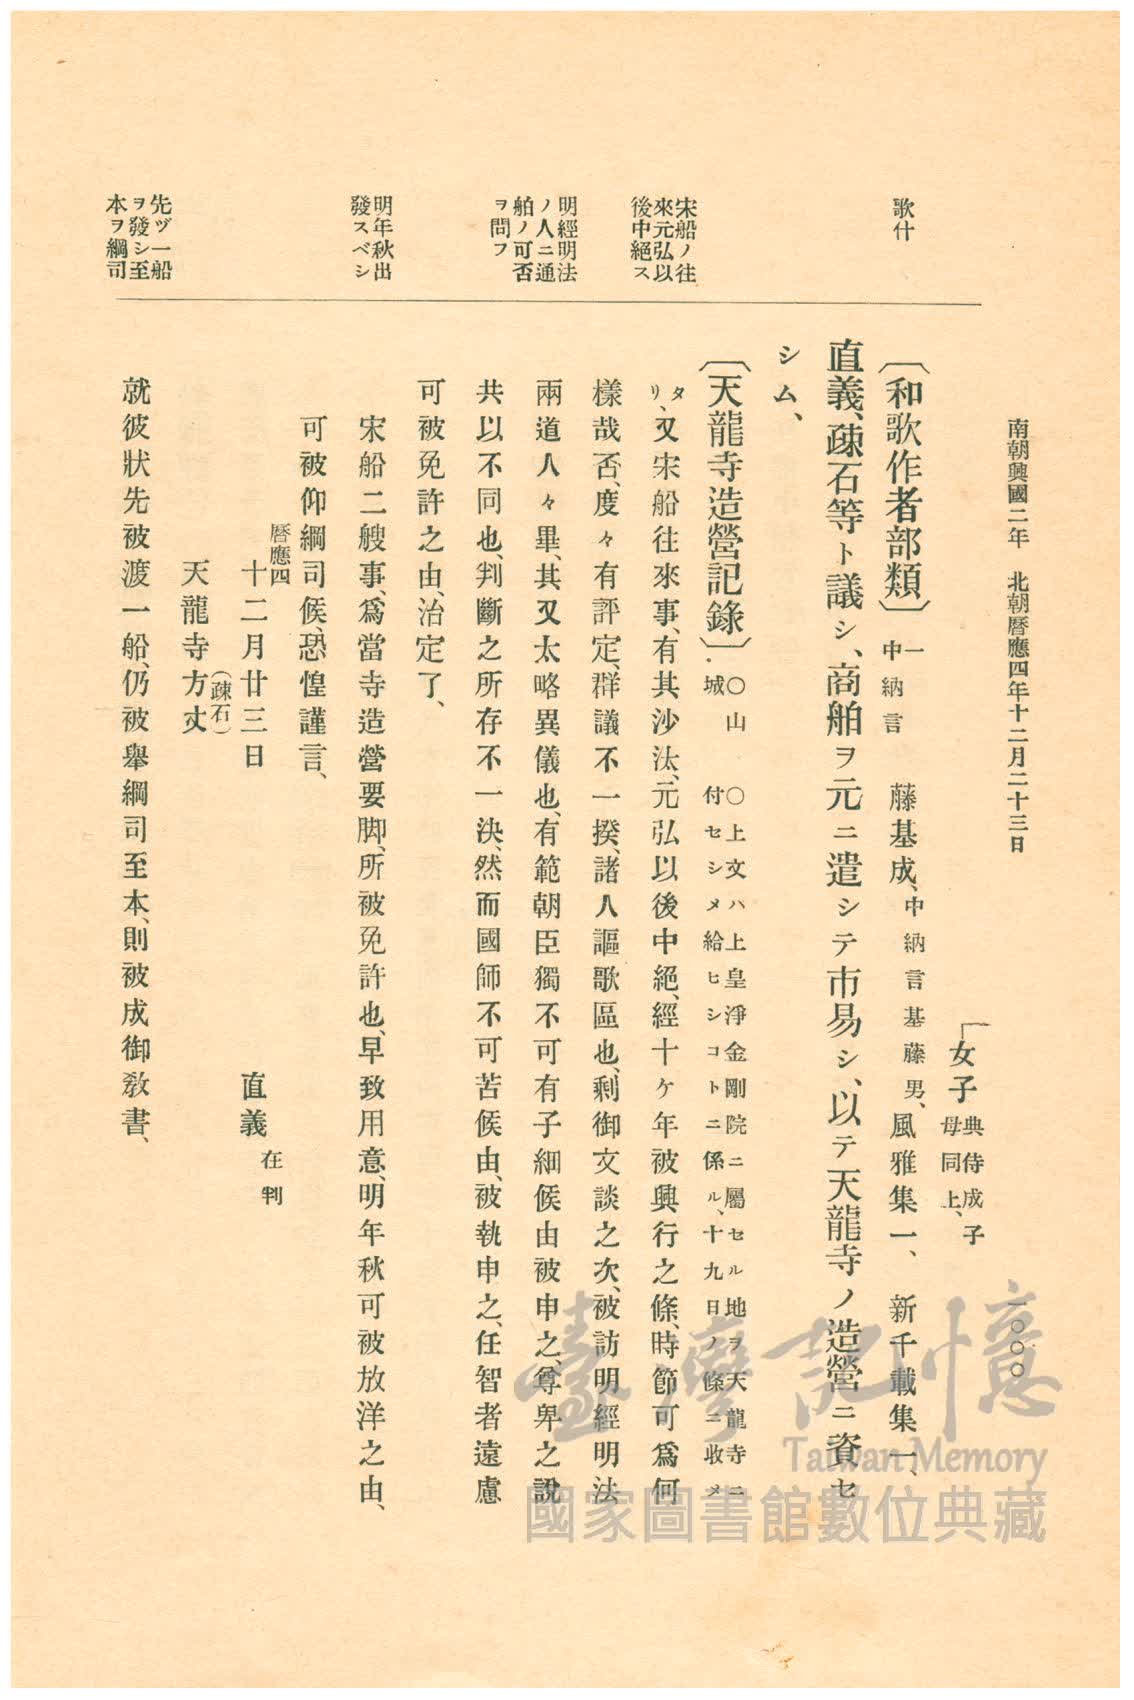 南朝興國二年　北朝曆應四年十二月二十三日
一〇〇〇
歌什
宋船ノ往
來元弘以
後中絕ス
明經明法
ノ人ニ通
舶ノ可否
ヲ問フ
明年秋出
發スベシ
先ヅ一船
ヲ發シ至
本ヲ綱司
女子典侍成子
母同上、
〔和歌作者部類〕一中納言　藤基成、中納言基藤男、風雅集一、　新千載集一、
直義、疎石等ト議シ、商舶ヲ元ニ遣シテ市易シ、以テ天龍寺ノ造營ニ資セ
シム、
〔天龍寺造營記錄〕〇山城　〇上文ハ上皇淨金剛院ニ屬セル地ヲ天龍寺ニ
付セシメ給ヒシコトニ係ル、十九日ノ條ニ收メ
タリ、又宋船往來事、有其沙汰、元弘以後中絕、經十ケ年被興行之條、時節可爲何
樣哉否、度々有評定、群議不一揆、諸人謳歌區也、剩御文談之次、被訪明經明法
兩道人々畢、其又太略異儀也、有範朝臣獨不可有子細候由被申之、尊卑之說
共以不同也、判斷之所存不一決、然而國師不可苦候由、被執申之、任智者遠慮
可被免許之由、治定了、
宋船二艘事、爲當寺造營要脚、所被免許也、早致用意、明年秋可被放洋之由、
可被仰綱司候、恐惶謹言、
曆應四
十二月廿三日　直義在判
天龍寺方丈（疎石）
就彼狀先被渡一船、仍被舉綱司至本、則被成御敎書、
臺灣記憶
Taiwan Memory
國家圖書館數位典藏